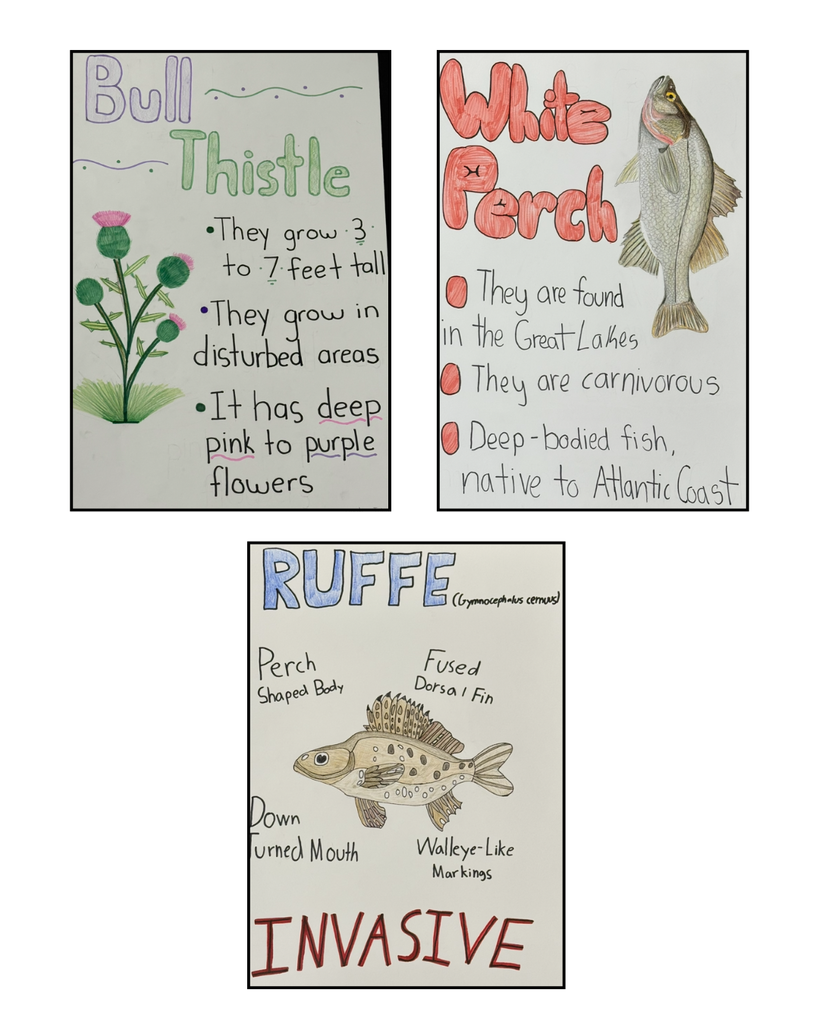 Bull
Thistle
•They grow 3
to 7 feet tall
•They grow in
disturbed areas
•It has deep
pink to purple
flowers
White
Perch
They are found
in the Great Lakes
They are carnivorous
Deep-bodied fish,
native to Atlantic Coast
RUFFE (Gymnocephalus cernuus)
Perch
Shaped Body
Fused
Dorsal Fin
Down
Turned Mouth
Walleye-Like
Markings
INVASIVE